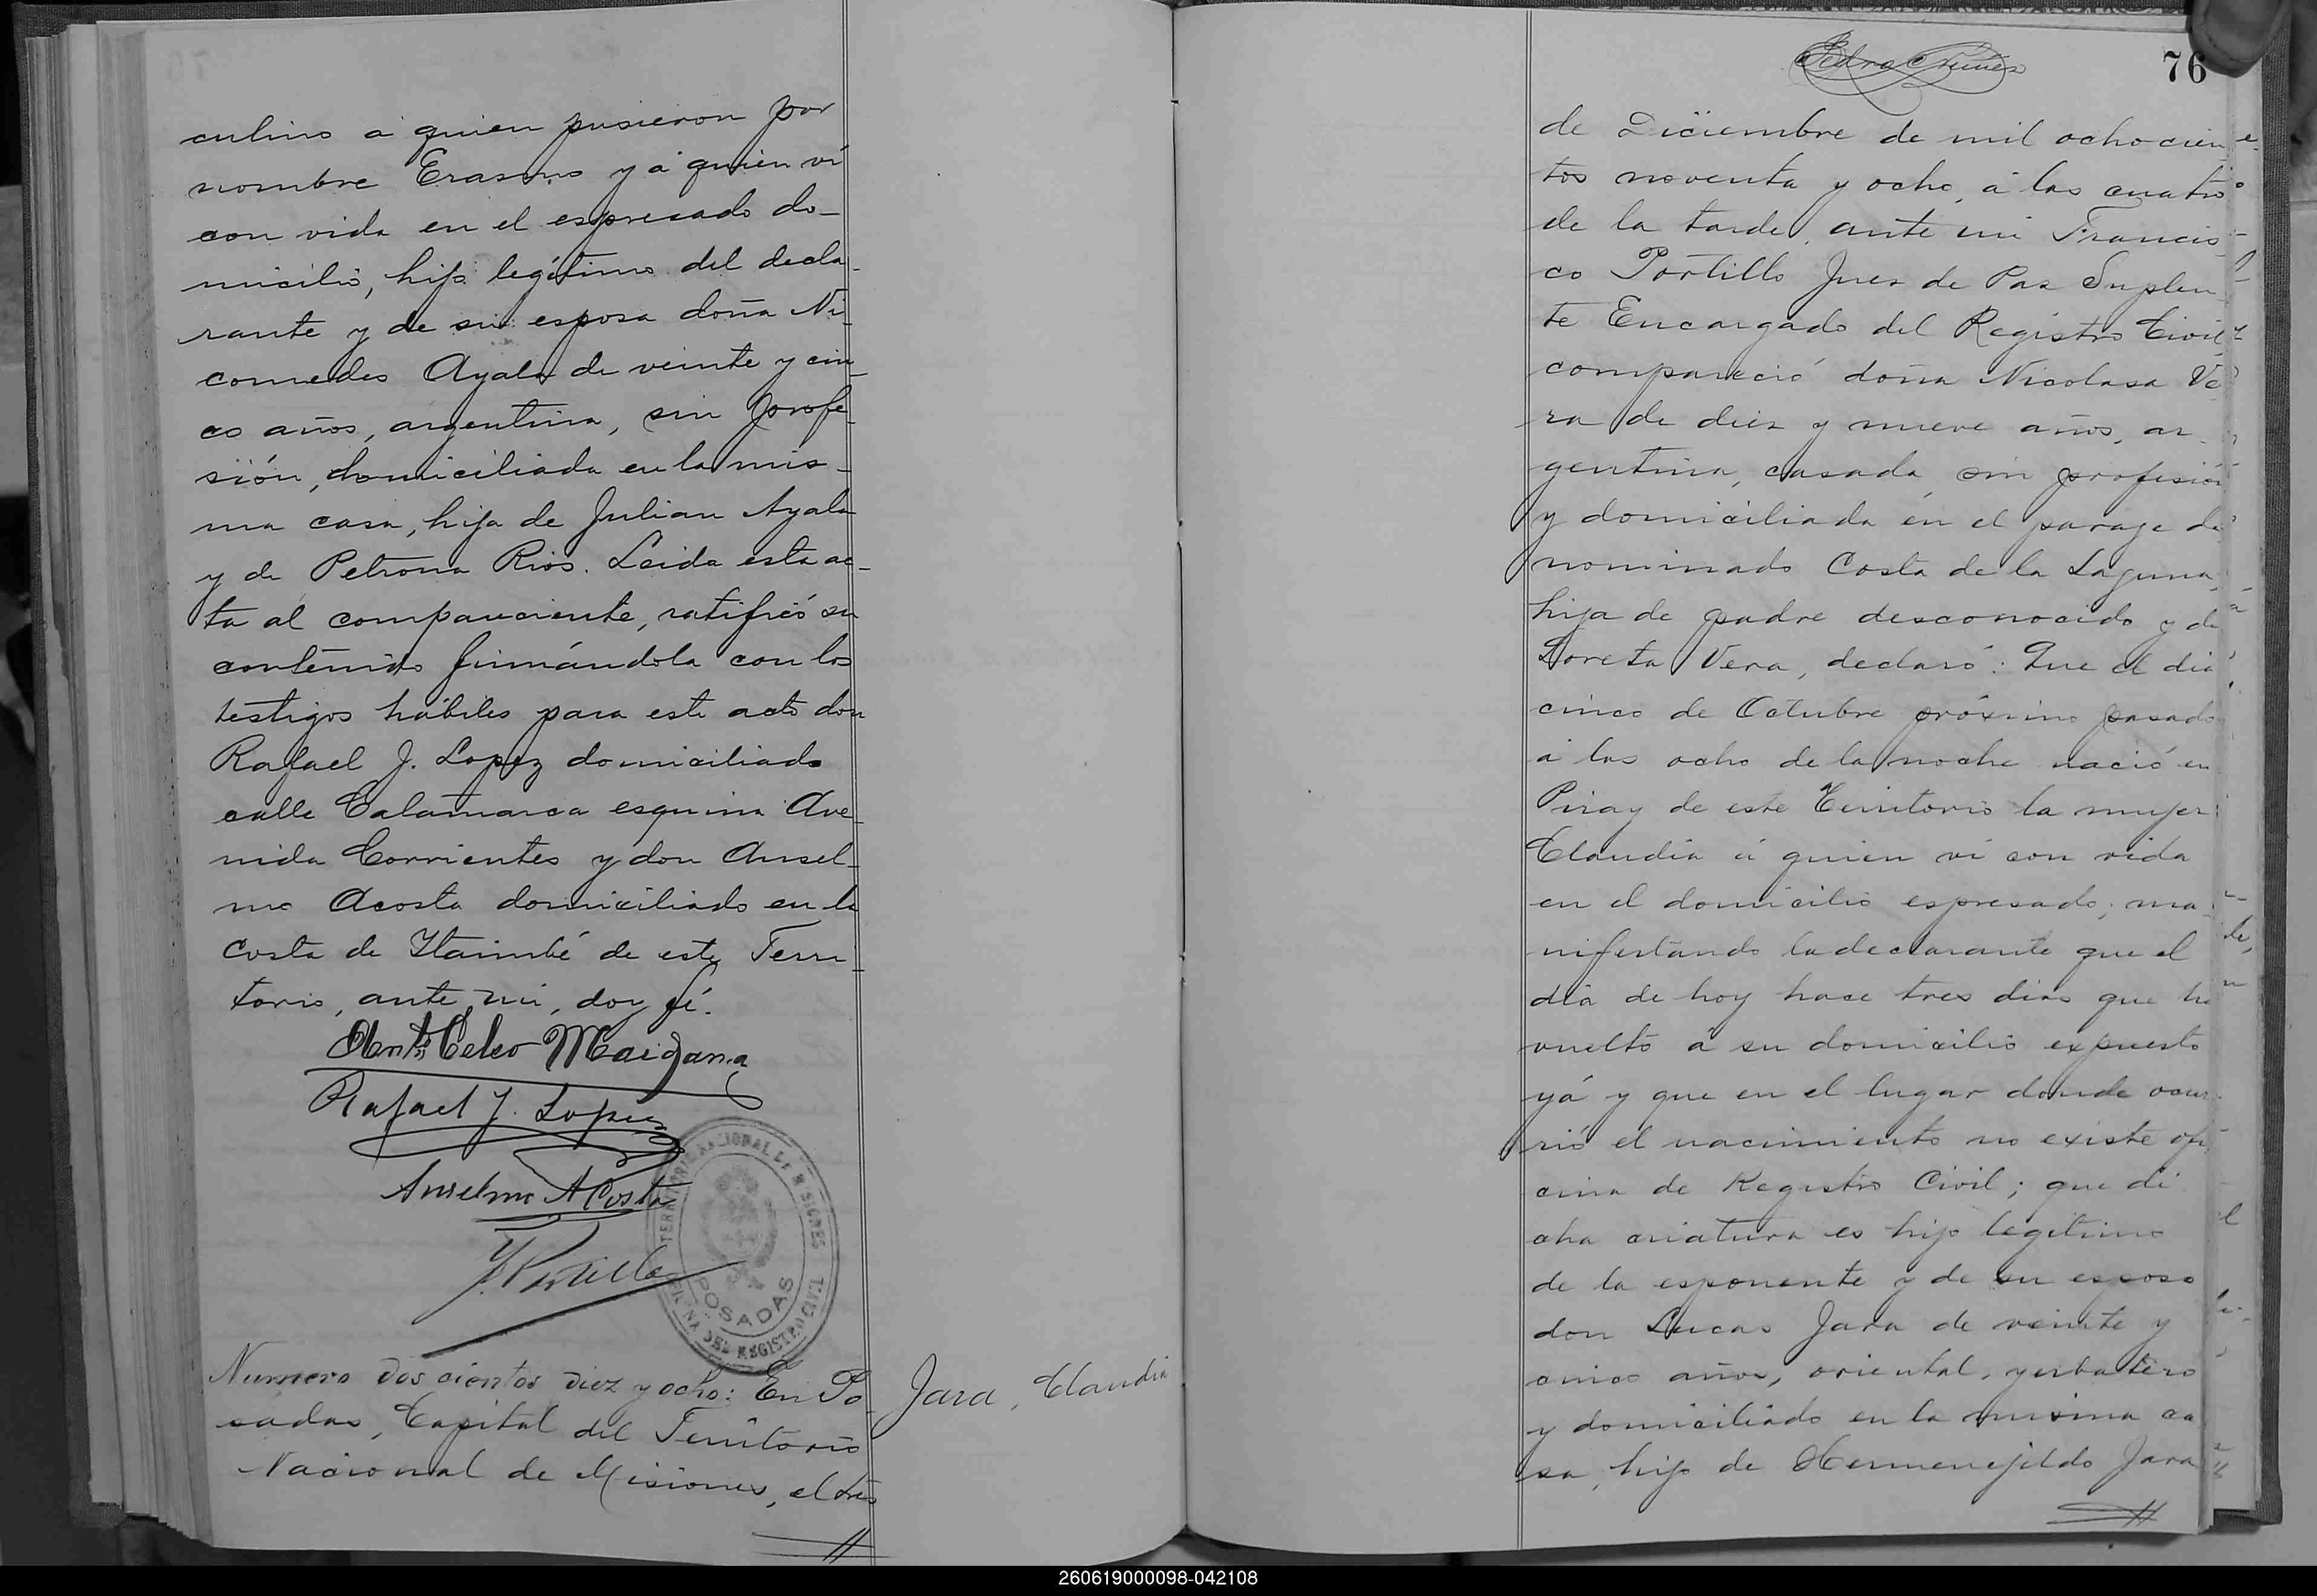 culino á quien pusieron por
nombre Erasmo y á quien ví
con vida en el espresado do-
micilio, hijo legítimo del decla-
rante y de su esposa doña Ni-
comedes Ayala de veinte y cin-
co años, argentina, sin profe-
sión, domiciliada en la mis-
ma casa, hija de Julian Ayala
y de Petrona Rios. Leida esta ac-
ta al compareciente, ratificó su
contenido firmándola con los
testigos hábiles para este acto don
Rafael J. Lopez domiciliado
calle Catamarca esquina Ave-
nida Corrientes y don Ansel-
mo Acosta domiciliado en la
Costa de Itaimbé de este Terri-
torio, ante mi, doy fé.
Anto Celso
Rafael J. Lopez
Anselmo Acosta
F. Portillo
TERRITORIO NACIONAL DE MISIONES
POSADAS
OFICINA DEL REGISTRO CIVIL
Numero dos cientos diez y ocho: En Po-
sadas, Capital del Territorio
Nacional de Misiones, el tres
Jara, Claudia
Pedro Nuñez
76
de Diciembre de mil ochocien-
tos noventa y ocho, á las cuatro
de la tarde, ante mi Francis-
co Portillo Juez de Paz Suplen-
te Encargado del Registro Civil
compareció doña Nicolasa Ve-
ra de diez y nueve años, ar-
gentina, casada, sin profesión
y domiciliada en el paraje de-
nominado Costa de la Laguna,
hija de padre desconocido y de
Loreta Vera, declaró: Que el dia
cinco de Octubre próximo pasado
á las ocho de la noche nació en
Piray de este Territorio la mujer
Claudia á quien ví con vida
en el domicilio espresado; ma-
nifestando la declarante que el
dia de hoy hace tres dias que ha
vuelto á su domicilio expuesto
yá y que en el lugar donde ocur-
rió el nacimiento no existe ofi-
cina de Registro Civil; que di-
cha criatura es hijo legitimo
de la esponente y de su esposo
don Lucas Jara de veinte y
cinco años, oriental, yerbatero
y domiciliado en la misma ca-
sa, hijo de Hermenejildo Jara
260619000098-042108